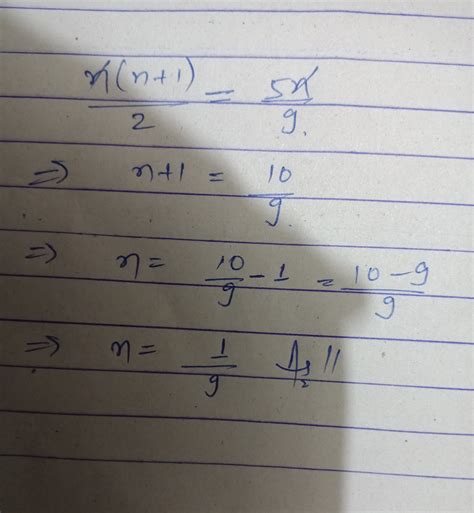 n(n+1)/2 = 5n/9.
⇒ n+1 = 10/9.
⇒ n = 10/9 - 1 = (10-9)/9
⇒ n = 1/9 Ans //